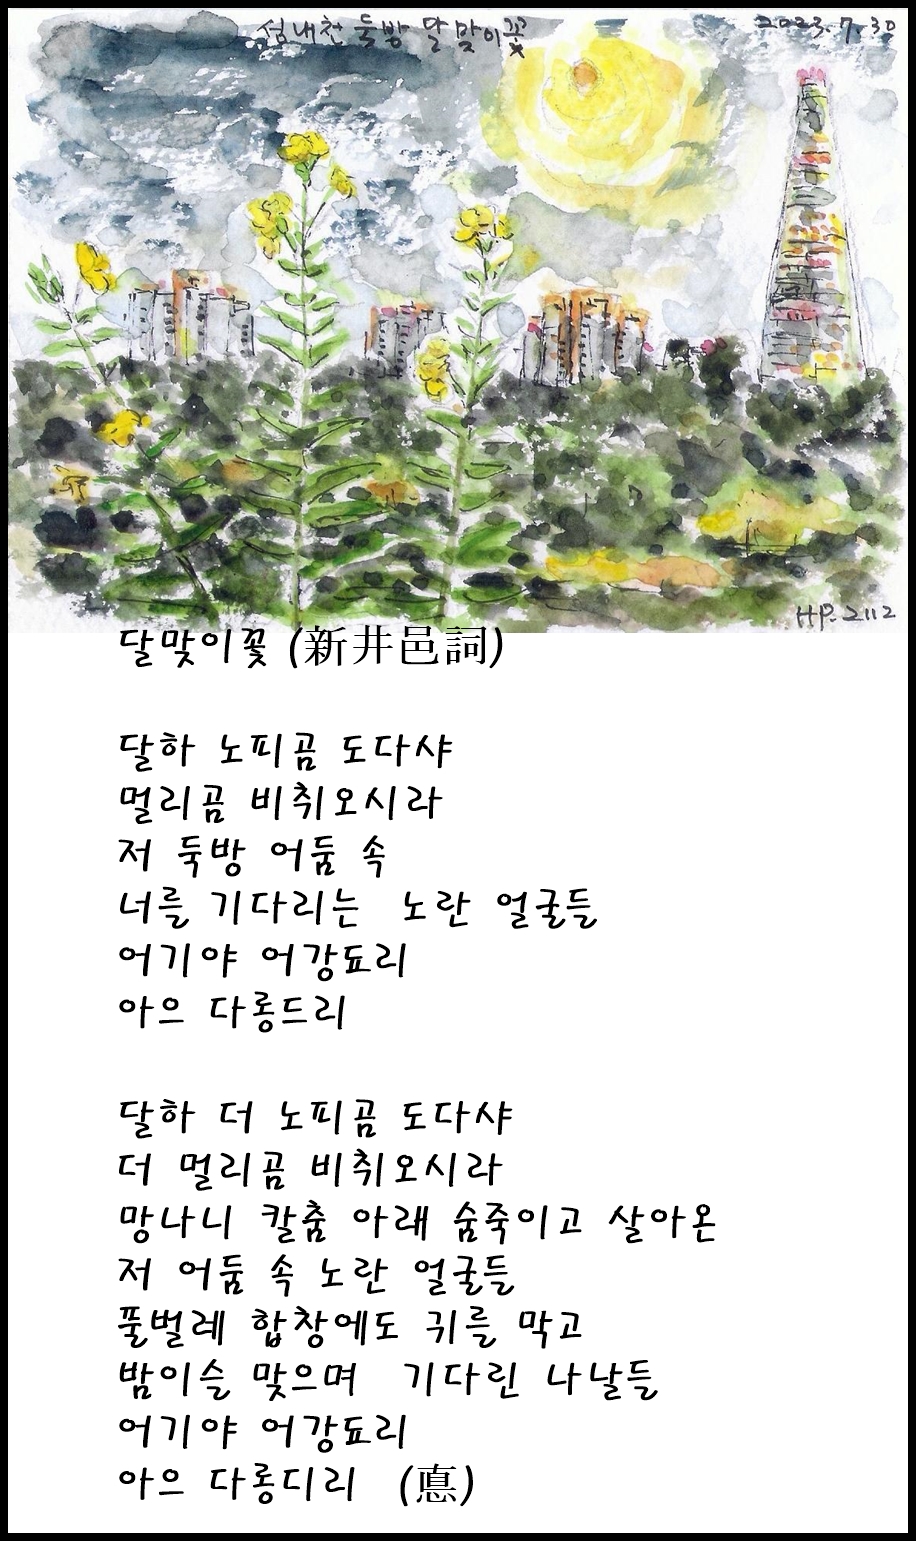 성내천 둑방 달맞이꽃
2023.7.30
HP. 2112
달맞이꽃 (新井邑詞)
달하 노피곰 도다샤
멀리곰 비취오시라
저 둑방 어둠 속
너를 기다리는 노란 얼굴들
어기야 어강됴리
아으 다롱드리
달하 더 노피곰 도다샤
더 멀리곰 비취오시라
망나니 칼춤 아래 숨죽이고 살아온
저 어둠 속 노란 얼굴들
풀벌레 합창에도 귀를 막고
밤이슬 맞으며 기다린 나날들
어기야 어강됴리
아으 다롱디리 (悳)